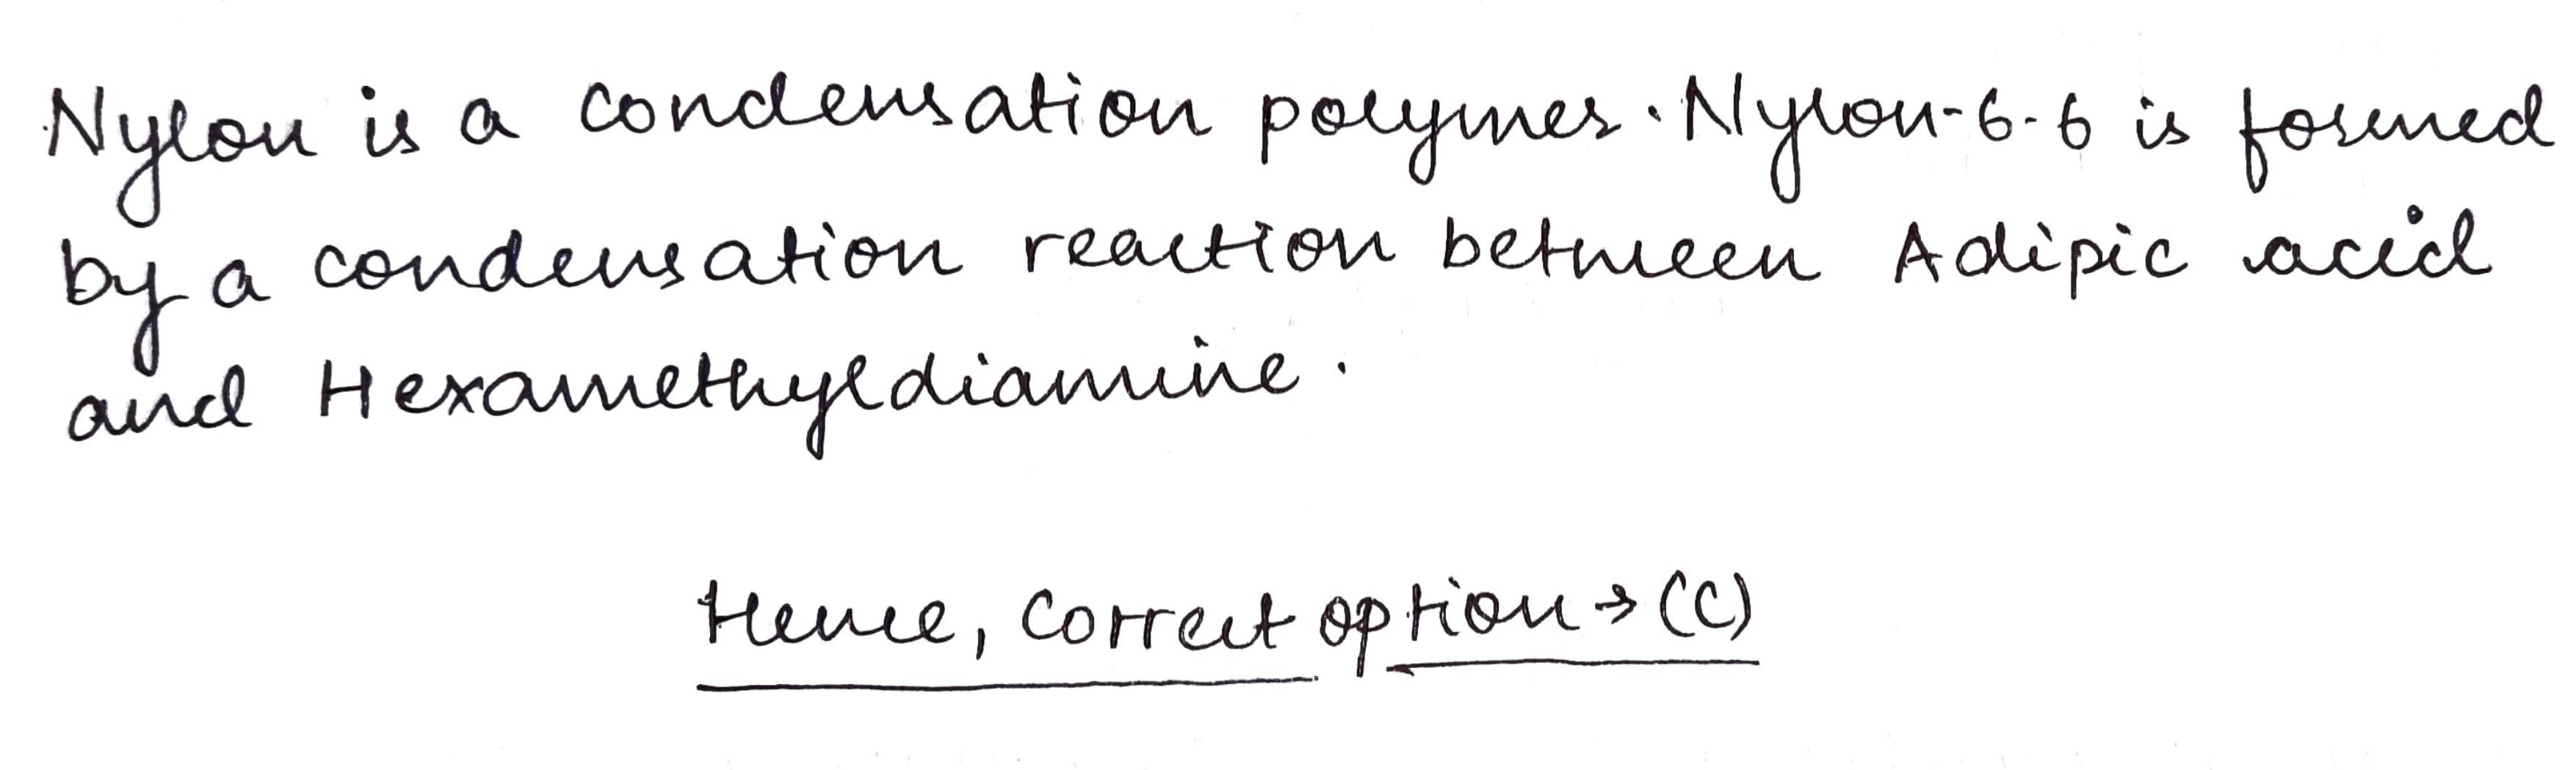 Nylon is a condensation polymer. Nylon-6-6 is formed
by a condensation reaction between Adipic acid
and Hexamethyldiamine.
Hence, Correct option → (C)